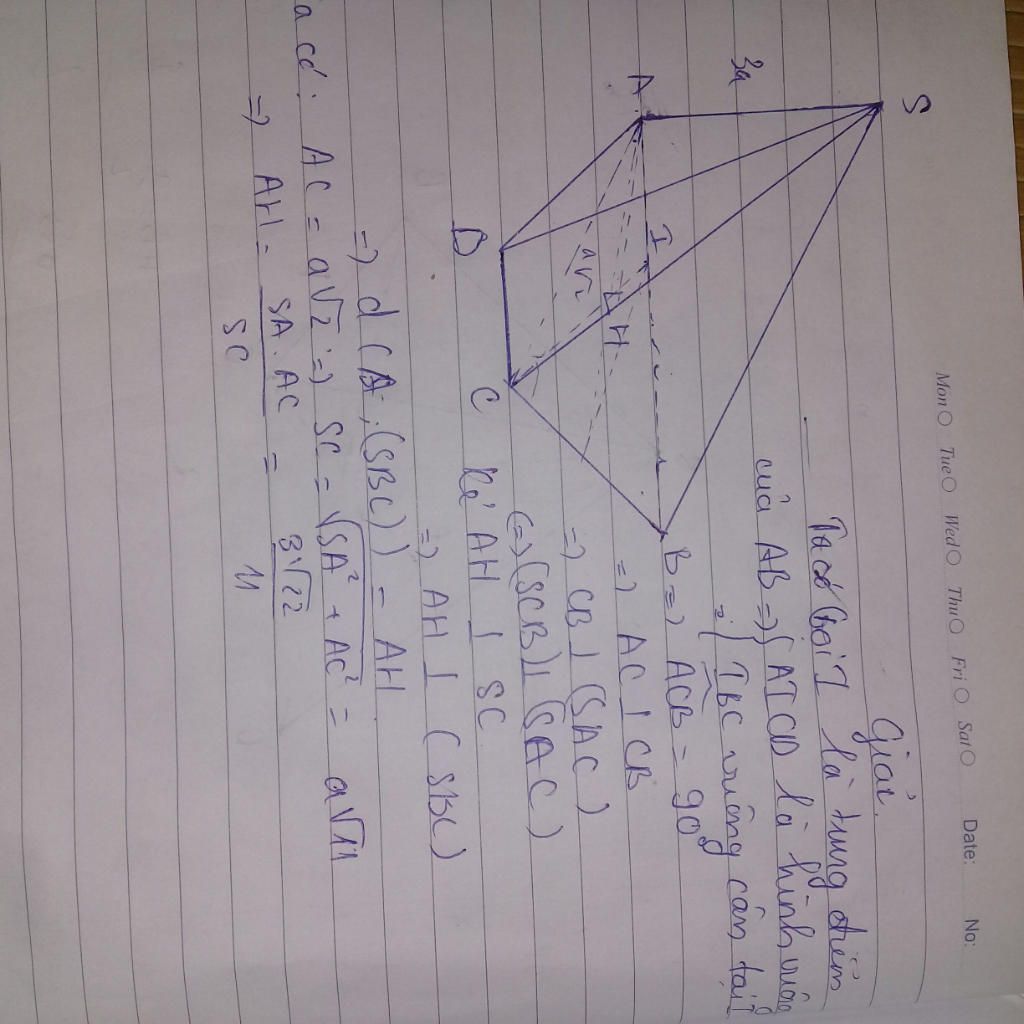 Mon Tue Wed Thu Fri Sat Date: No:
Giải
Gọi I là trung điểm
của AB => { AICD là hình vuông
{ IBC vuông cân tại I
=> ACB = 90°
=> AC ⊥ CB
=> CB ⊥ (SAC)
(=> (SCB) ⊥ (SAC)
Kẻ AH ⊥ SC
=> AH ⊥ (SBC)
=> d(A; (SBC)) = AH
a có: AC = a√2 => SC = √SA² + AC² = a√11
=> AH = SA.AC / SC = 3√22 / 11
S
3a
A
I
H
a√2
B
D
C